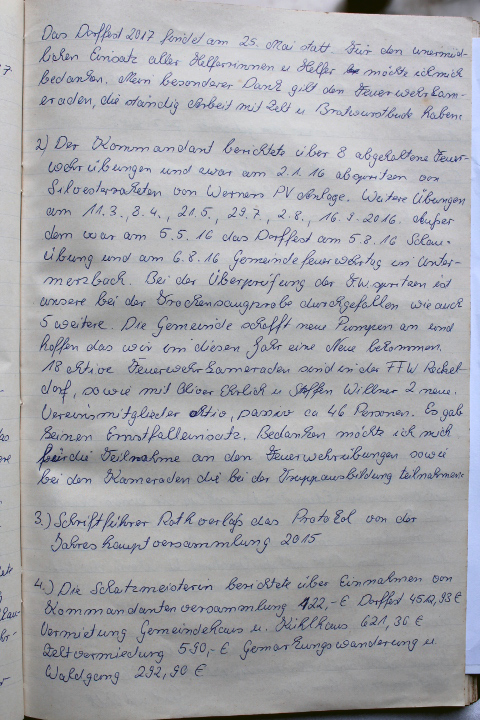 Das Dorffest 2017 findet am 25. Mai statt. Für den unermüd-
lichen Einsatz aller Helferinnen u Helfer möchte ich mich
bedanken. Mein besonderer Dank gilt den Feuerwehrkam-
eraden, die ständig Arbeit mit Zelt u Bratwurstbude haben.
2) Der Kommandant berichtete über 8 abgehaltene Feuer-
wehrübungen und zwar am 2.1.16 abspritzen von
Silvesterraketen von Werners PV Anlage. Weitere Übungen
am 11.3., 8.4., 21.5., 29.7., 2.8., 16.9.2016. Außer
dem war am 5.5.16 das Dorffest am 5.8.16 Schau-
übung und am 6.8.16 Gemeindefeuerwehrtag in Unter-
merzbach. Bei der Überprüfung der FW spritzen ist
unsere bei der Trockensaugprobe durchgefallen wie auch
5 weitere. Die Gemeinde schafft neue Pumpen an und
hoffen das wir in diesen Jahr eine Neue bekommen.
18 aktive Feuerwehrkameraden sind in der FFW Recheldorf
dorf, sowie mit Oliver Ehrlich u Steffen Willner 2 neue.
Vereinsmitglieder aktiv, passiv ca 46 Personen. Es gab
keinen Ernstfalleinsatz. Bedanken möchte ich mich
für die Teilnahme an den Feuerwehrübungen sowie
bei den Kameraden die bei der Truppausbildung teilnahmen.
3.) Schriftführer Roth verlaß das Protokol von der
Jahreshauptversammlung 2015
4.) Die Schatzmeisterin berichtete über Einnahmen von
Kommandantenversammlung 122,- € Dorffest 4512,93 €
Vermietung Gemeindehaus u. Kühlhaus 621,36 €
Zeltvermiedung 590,- € Gemarkungswanderung u
Waldgang 292,90 €